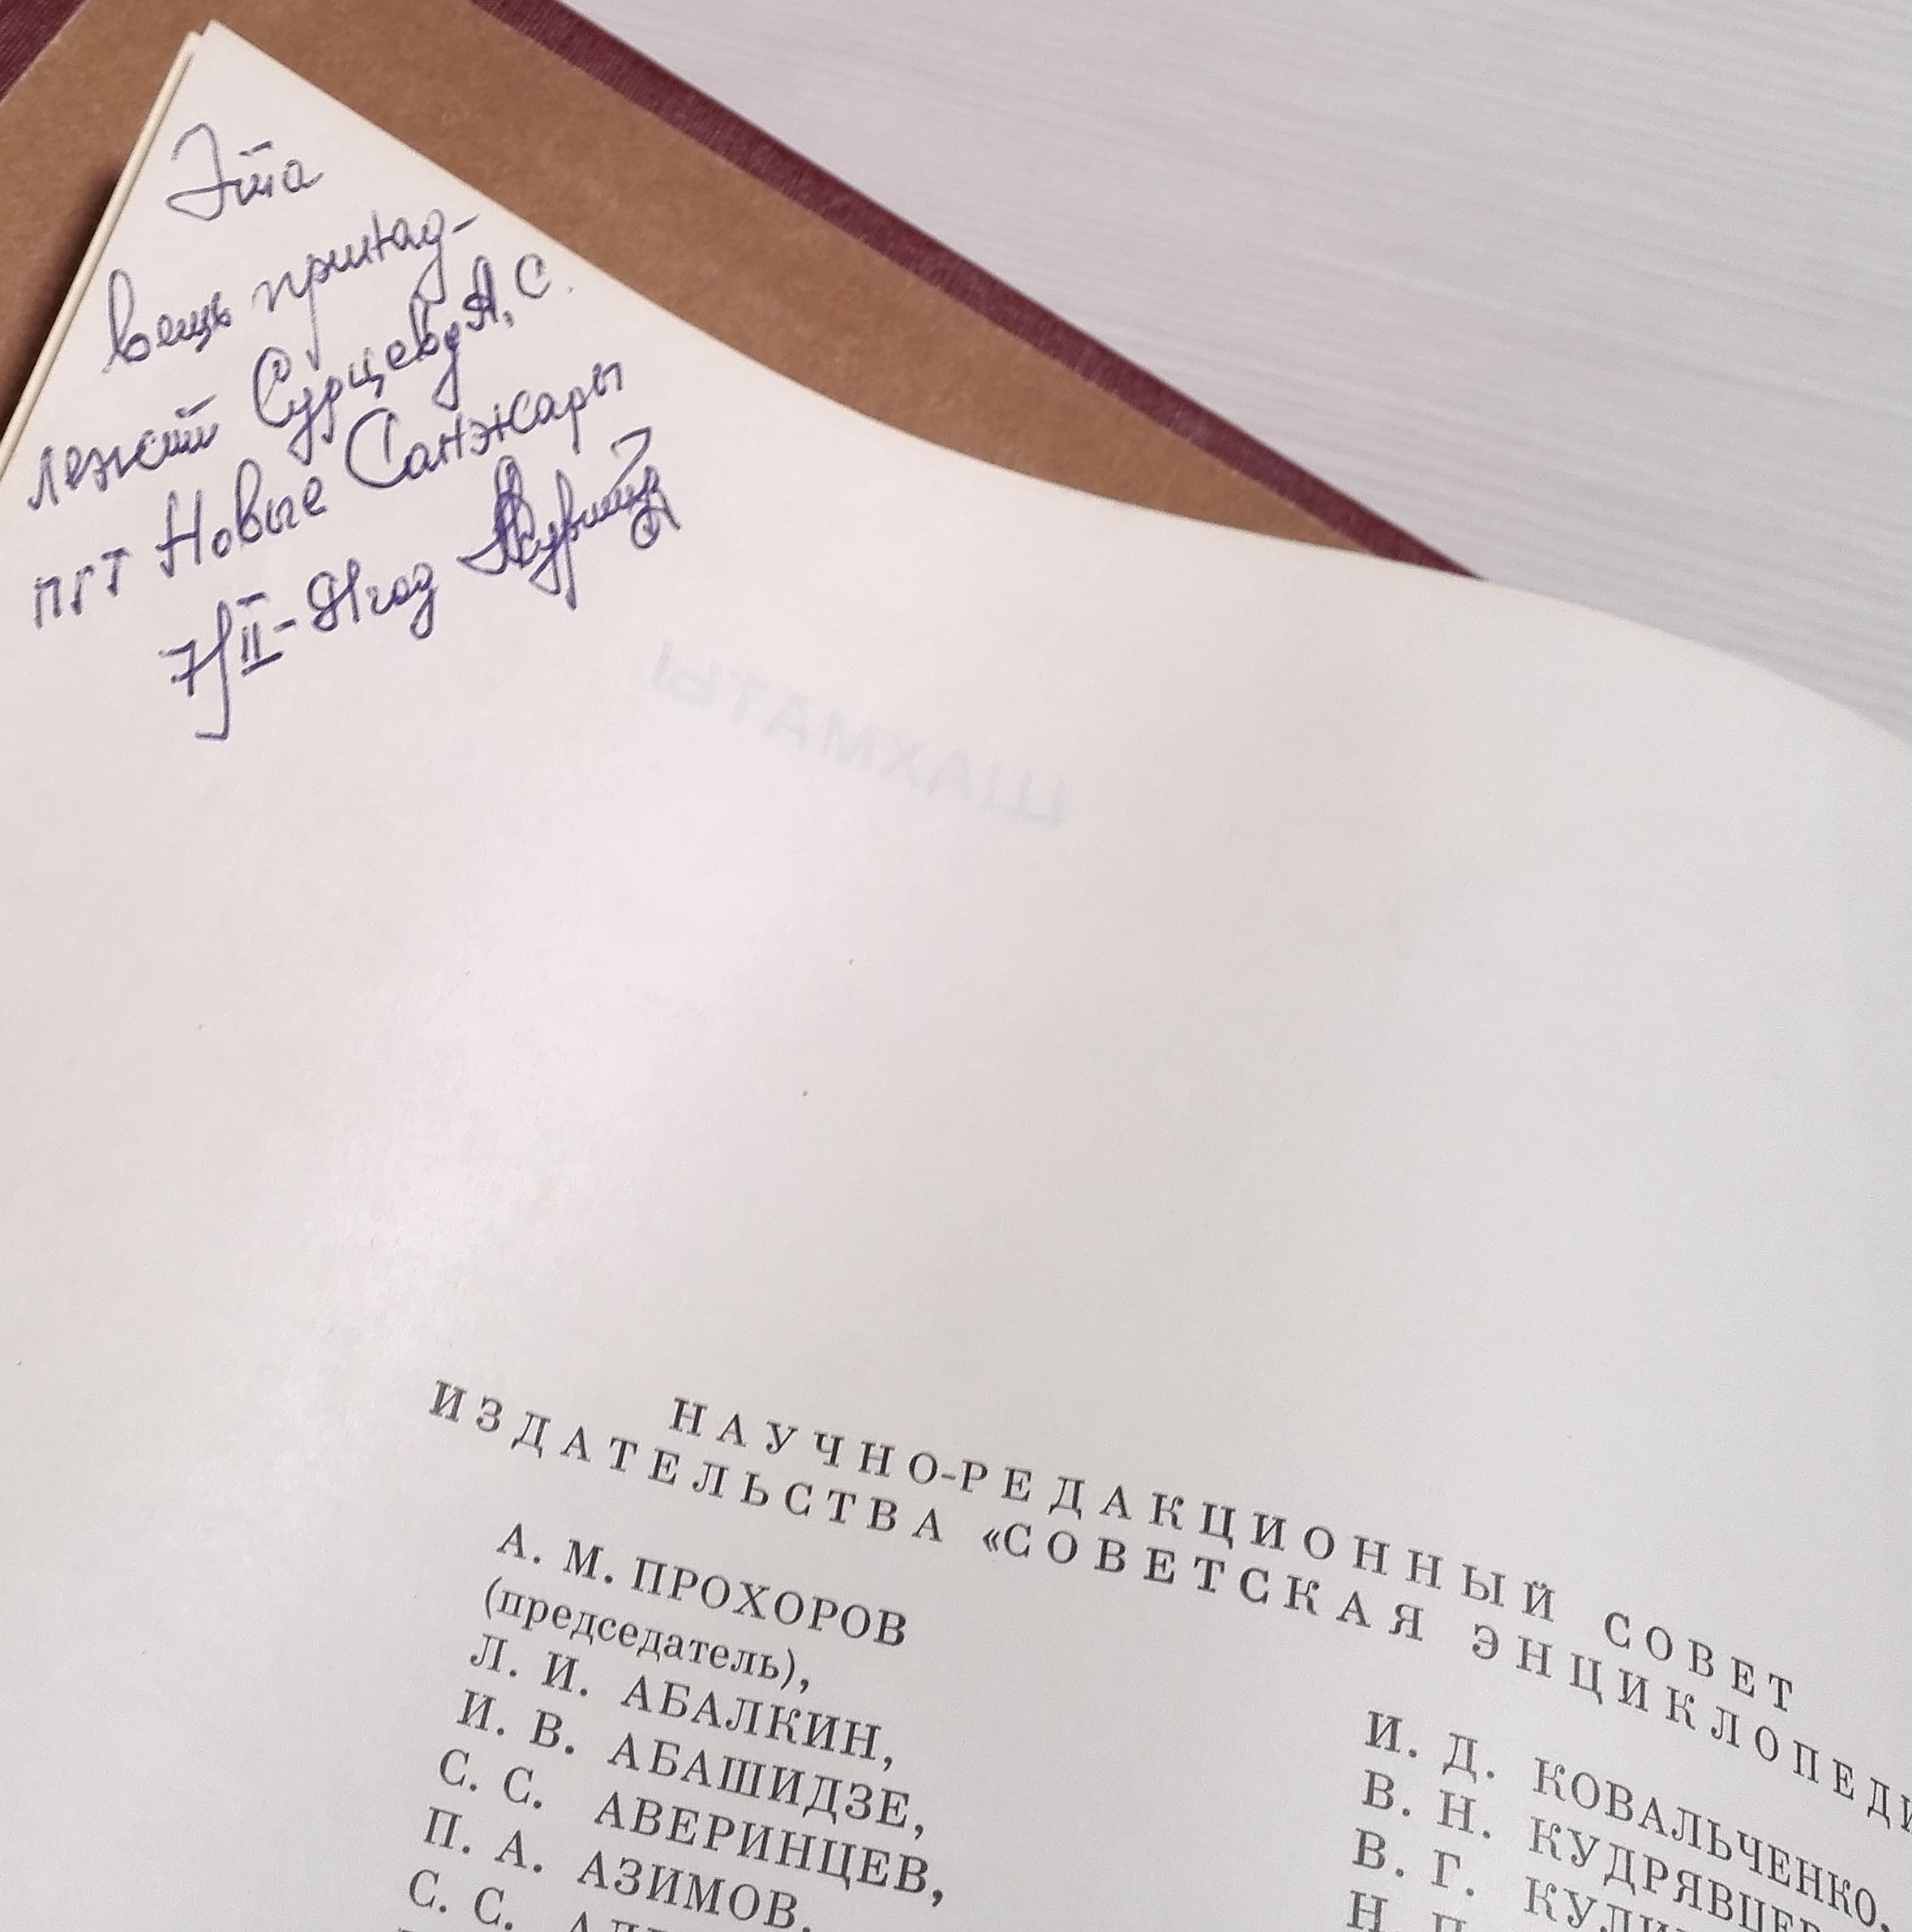 Эта
вещь принад-
лежит Сурцеву А. С.
пгт Новые Санжары
7/II-91год
ШАХМАТЫ
НАУЧНО-РЕДАКЦИОННЫЙ СОВЕТ
ИЗДАТЕЛЬСТВА «СОВЕТСКАЯ ЭНЦИКЛОПЕДИ
А. М. ПРОХОРОВ
(председатель),
Л. И. АБАЛКИН,
И. В. АБАШИДЗЕ,
С. С. АВЕРИНЦЕВ,
П. А. АЗИМОВ,
С. С.
И. Д. КОВАЛЬЧЕНКО,
В. Н. КУДРЯВЦЕВ
В. Г.